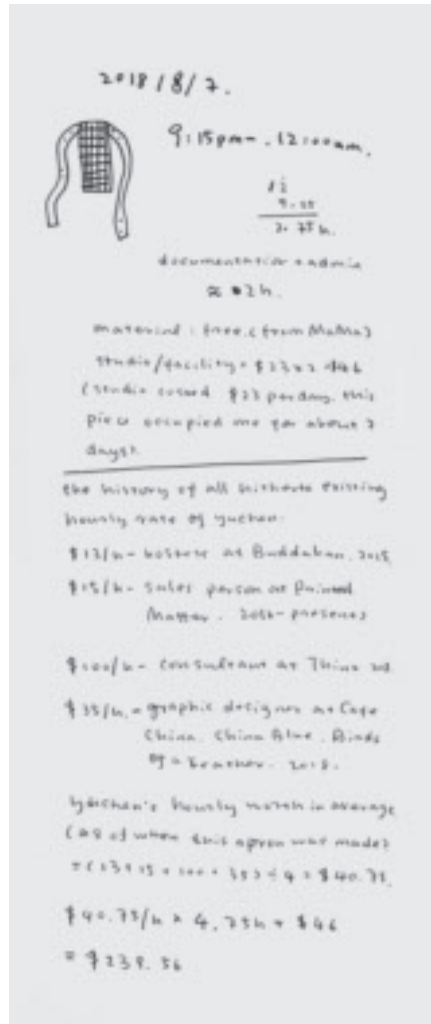 2018/8/7.
9:15pm - 12:00am.
12
9.25
2.75h.
documentation + admin
≈ 2h.
material: free (from MaMa)
studio/facility = $23 x 2 = $46
(studio costed $23 per day. this
piece occupied me for about 2
days).
the history of all hitherto existing
hourly rate of yuchen:
$13/h - hostess at Buddakan. 2015
$15/h - sales person at Printed
Matter. 2016 - present
$100/h - consultant at
$35/h. - graphic designer at Cafe
China. China Blue. Birds
of a Feather. 2018.
yuchen's hourly worth in average
(as of when this apron was made)
= (13 + 15 + 100 + 35) ÷ 4 = $40.75.
$40.75/h x 4.75h + $46
= $239.56